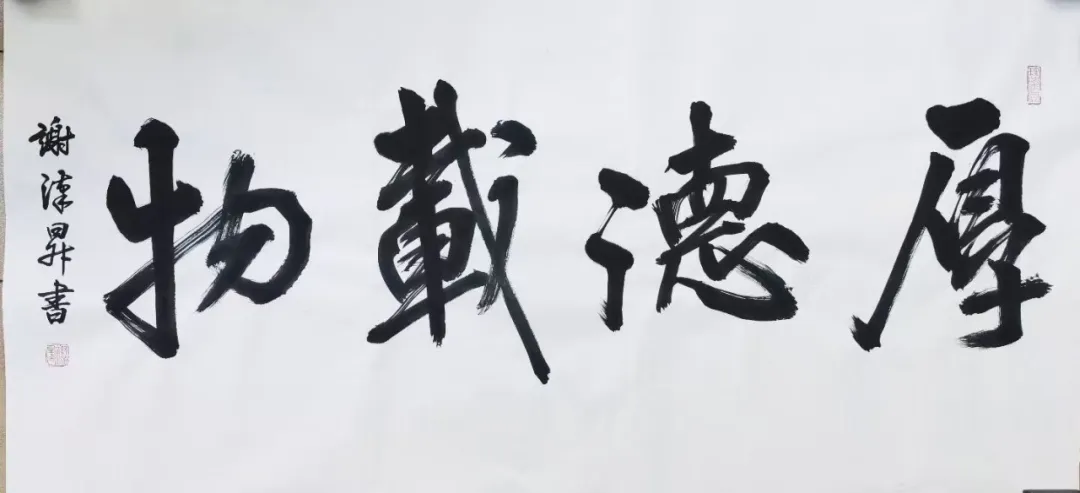 厚德載物
謝漢昇書